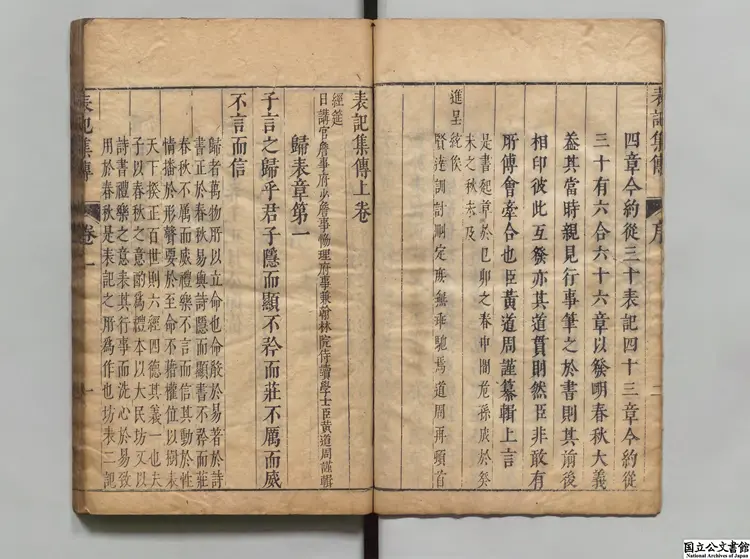 表記集傳 序 二
四章今約從三十表記四十三章今約從
三十有六合六十六章以發明春秋大義
葢其當時親見行事筆之於書則其前後
相印彼此互發亦其道貫則然臣非敢有
所傅會牽合也臣黃道周謹纂輯上言
是書起草於己卯之春中間危孫於癸
未之秋未及
進呈統俟
賢達訓討刪定庶無乖馳焉道周再頓首
表記集傳上卷
經筵
日講官詹事府少詹事協理府事兼翰林院侍讀學士臣黃道周謹輯
歸表章第一
子言之歸乎君子隱而顯不矜而莊不厲而威
不言而信
歸者萬物所以立命也命於易著於詩
書正於春秋易與詩隱而顯書不矜而莊
春秋不厲而威禮樂不言而信其動於性
情播於形聲要於至命不藉權位以樹表
天下揆正百世則六經四德其義一也夫
子以春秋之意酌爲禮本以大民坊又以
詩書禮樂之意表其行事而洗心於易致
用於春秋是表記之所爲作也坊表二記
表記集傳 卷一 一
国立公文書館
National Archives of Japan